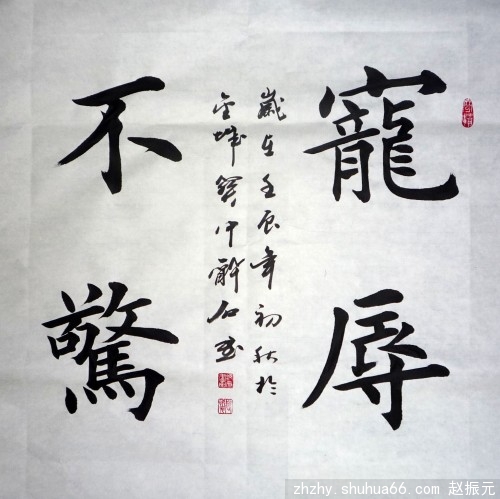 寵辱
歲在壬辰年初秋於
金城 中 石書
不驚
zhzhy.shuhua66.com 赵振元